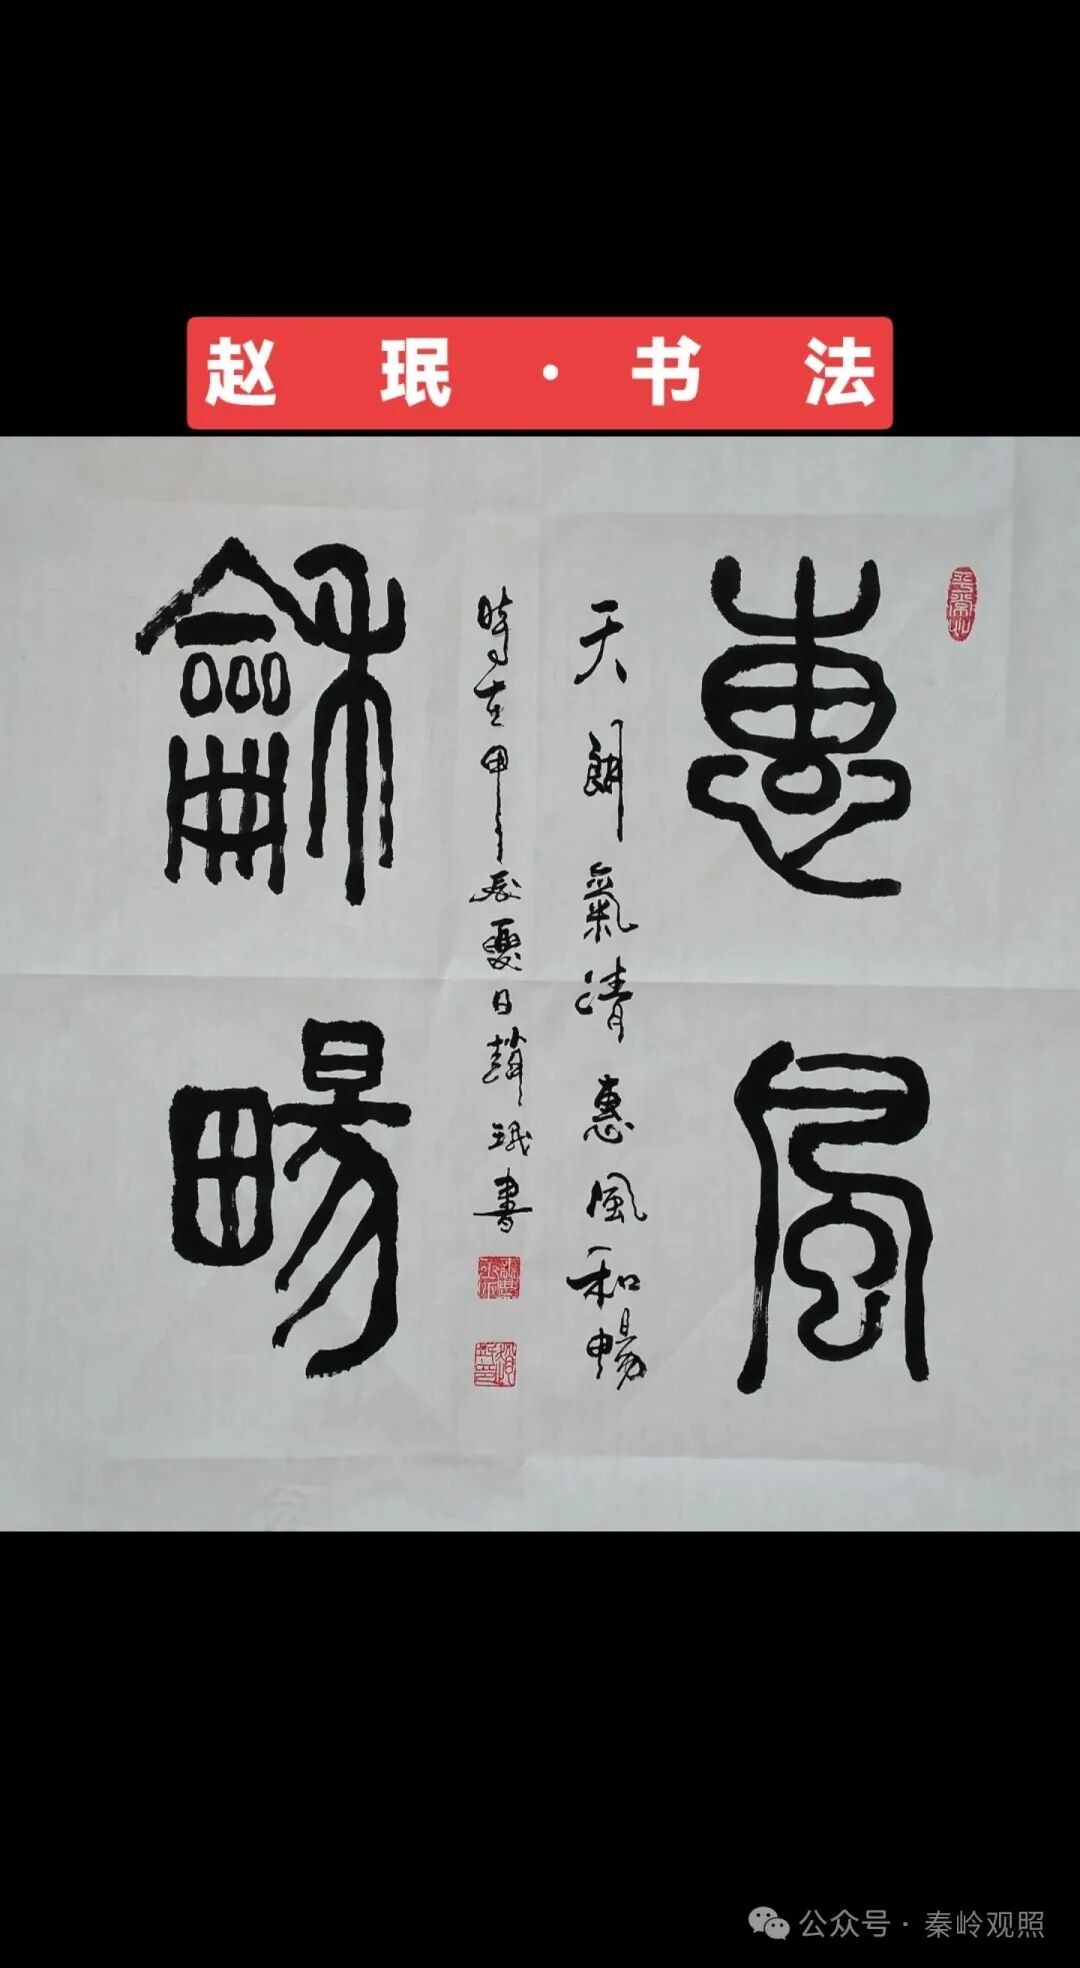 赵珉·书法
惠風
龢暢
天朗氣清惠風和暢
時在甲辰夏日趙珉書
平常心
公众号·秦岭观照